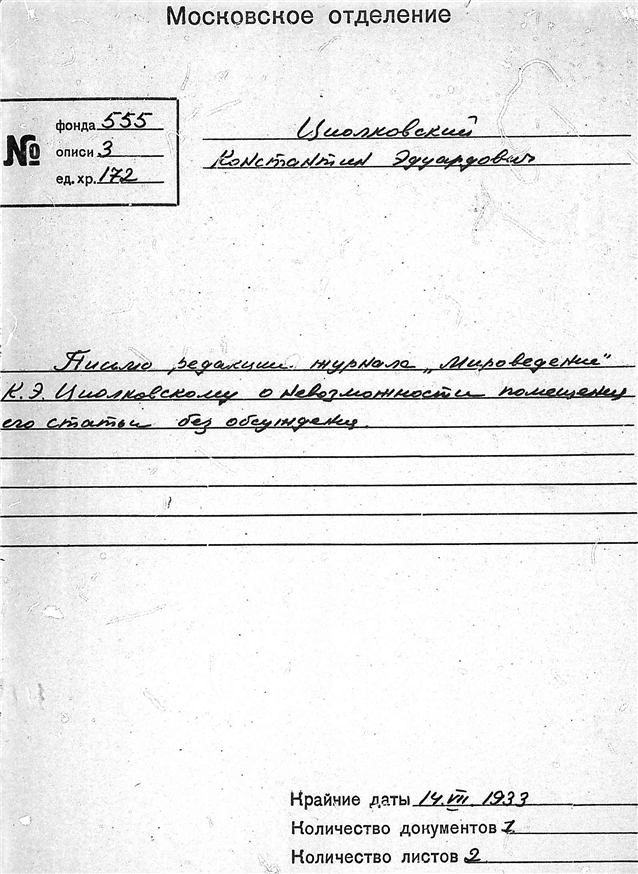 Московское отделение
№
фонда 555
описи 3
ед. хр. 172
Циолковский
Константин Эдуардович
Письмо редакции журнала „Мироведение"
К.Э. Циолковскому о невозможности помещения
его статьи без обсуждения.
Крайние даты 14.VII.1933
Количество документов 1
Количество листов 2